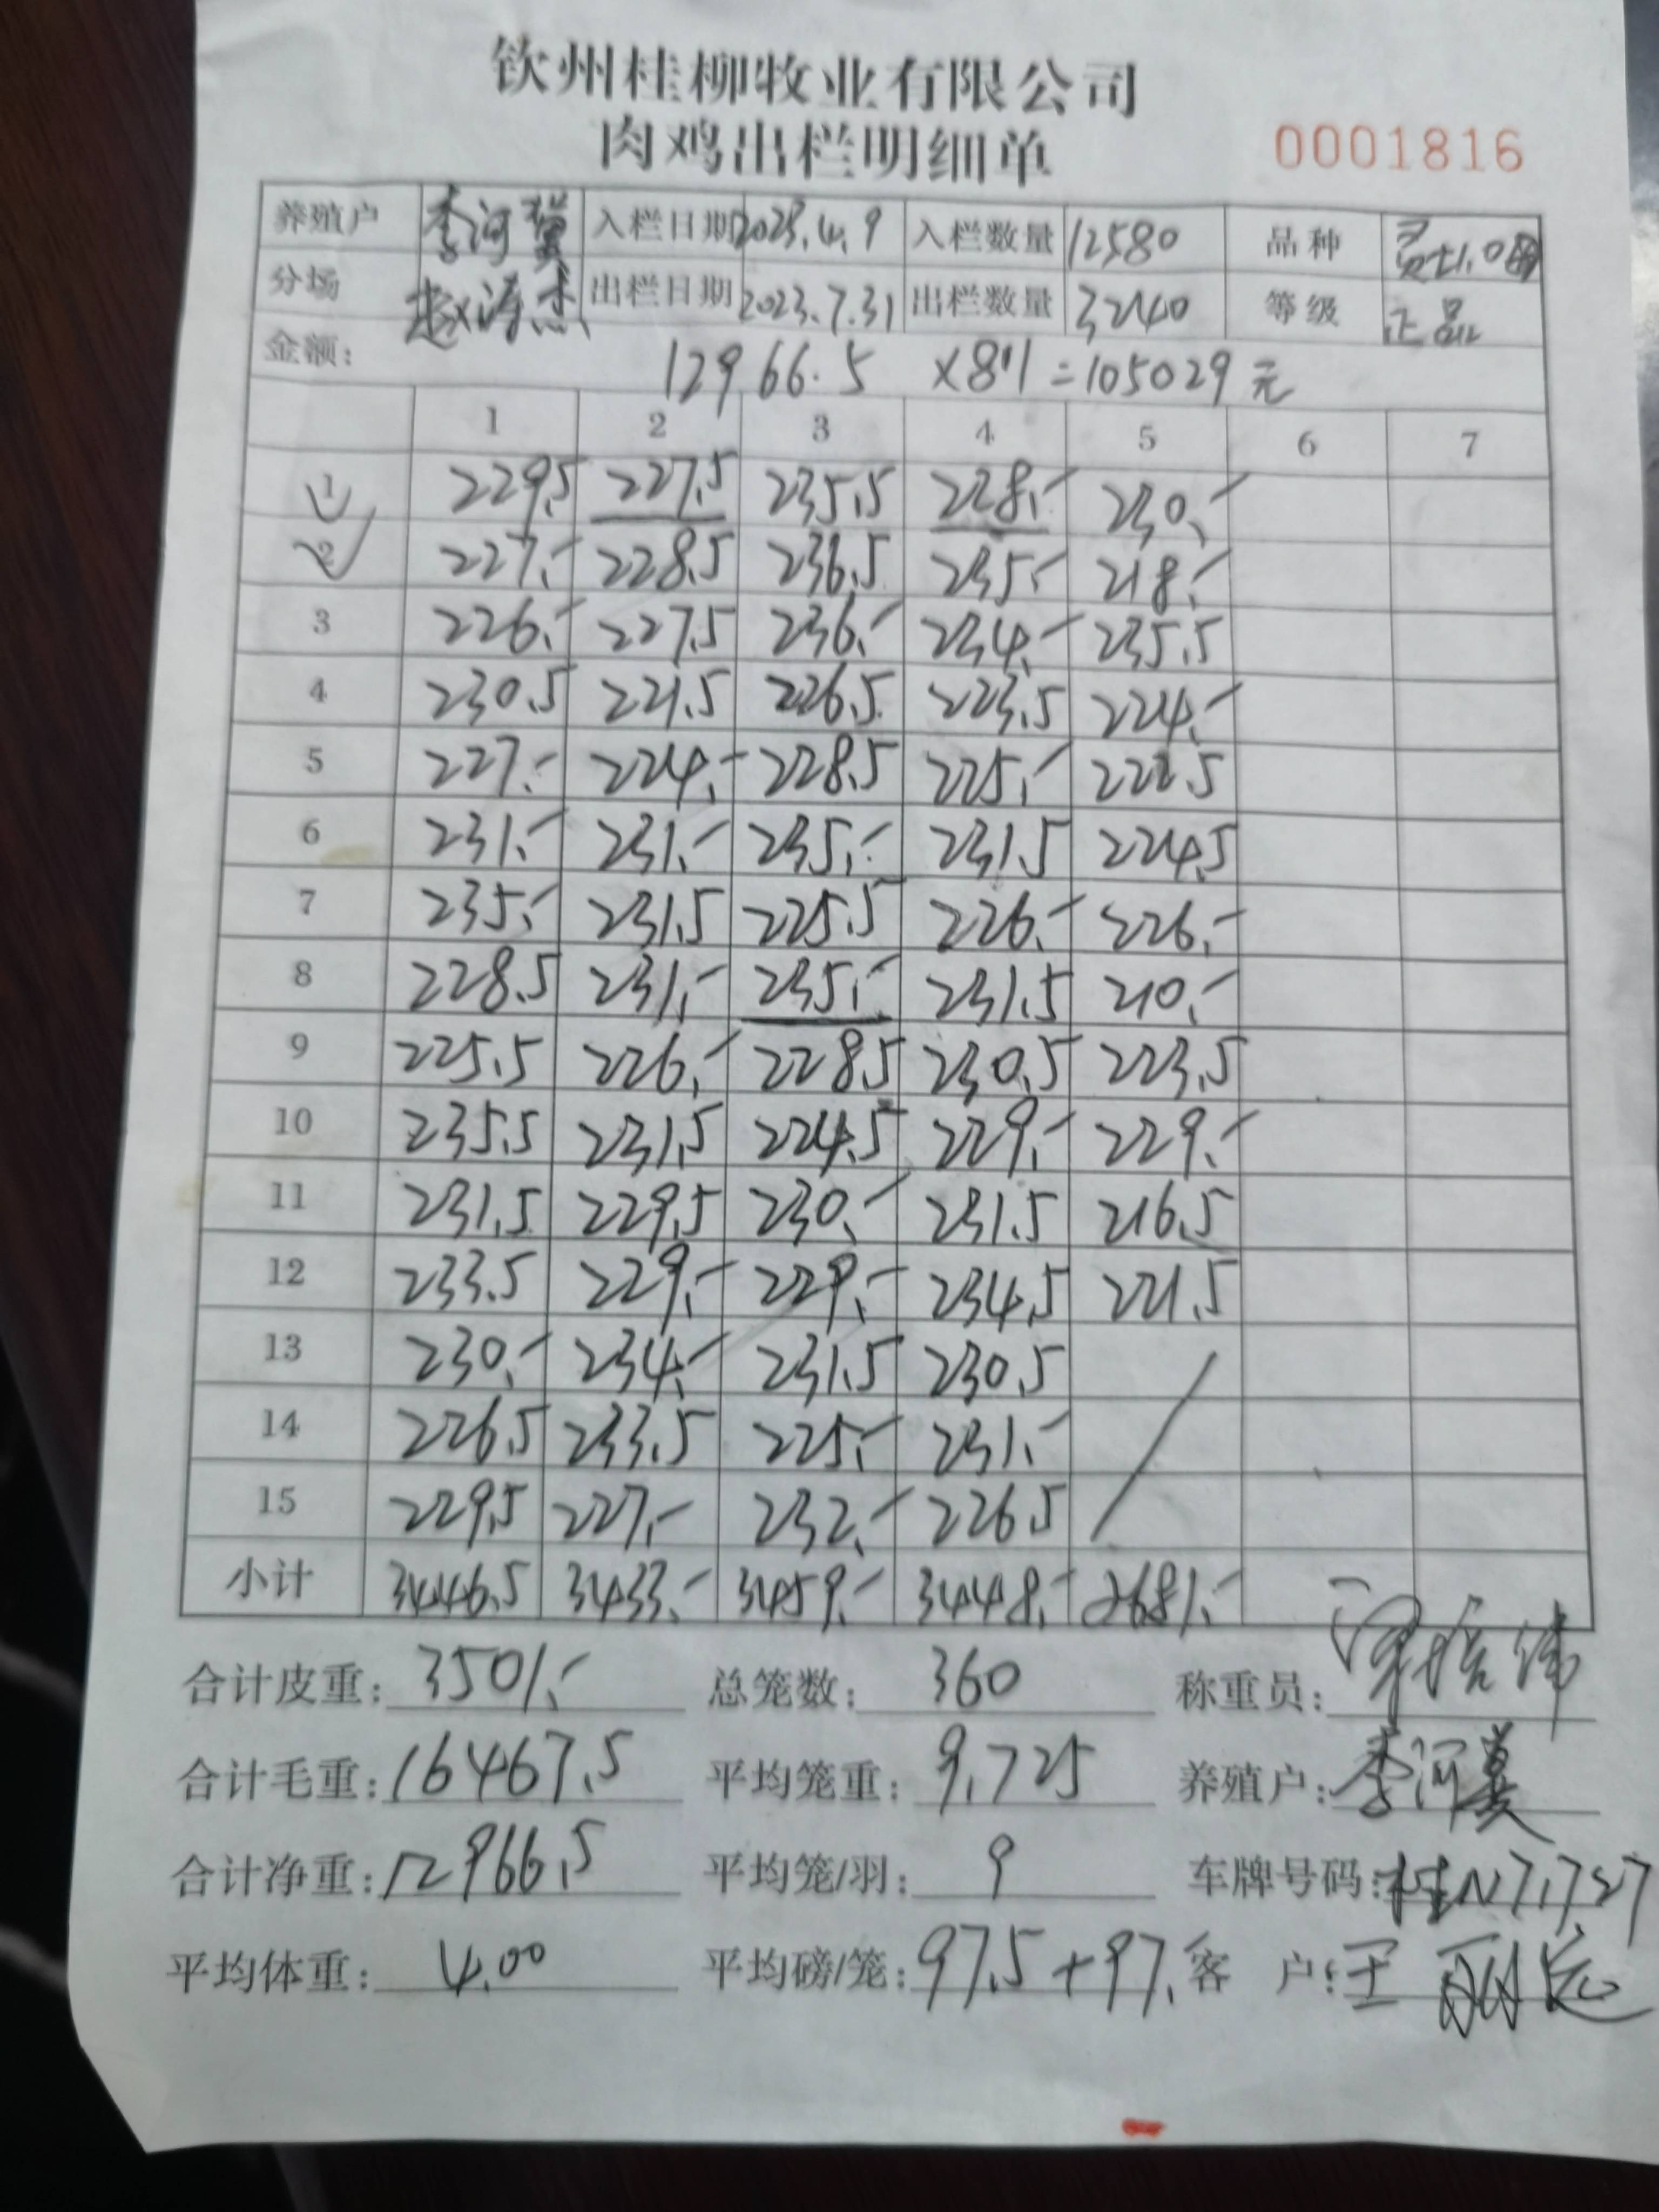 钦州桂柳牧业有限公司
肉鸡出栏明细单 0001816
养殖户 李河 入栏日期 2023.4.9 入栏数量 12580 品种
分场 赵海杰 出栏日期 2023.7.31 出栏数量 3240 等级 正品
金额: 12966.5 ×8.1=105029元
1 2 3 4 5 6 7
1 229.5 227.5 235.5 228.- 230.-
2 227.- 228.5 236.5 235.- 218.-
3 226.- 227.5 236.- 234.- 235.5
4 230.5 221.5 226.5 223.5 224.-
5 227.- 224.- 228.5 225.- 222.5
6 231.- 231.- 235.- 231.5 224.5
7 235.- 231.5 225.5 226.- 226.-
8 228.5 231.- 235.- 231.5 210.-
9 225.5 226.- 228.5 230.5 223.5
10 235.5 231.5 224.5 229.- 229.-
11 231.5 229.5 230.- 231.5 216.5
12 233.5 229.- 229.- 234.5 221.5
13 230.- 234.- 231.5 230.5
14 226.5 233.5 225.- 231.-
15 229.5 227.- 232.- 226.5
小计 3446.5 3433.- 3459.- 3448.- 2681.-
合计皮重: 3501.- 总笼数: 360 称重员:
合计毛重: 16467.5 平均笼重: 9.725 养殖户: 李河
合计净重: 12966.5 平均笼/羽: 9 车牌号码: 桂N7.727
平均体重: 4.00 平均磅/笼: 97.5+97. 客户: 王